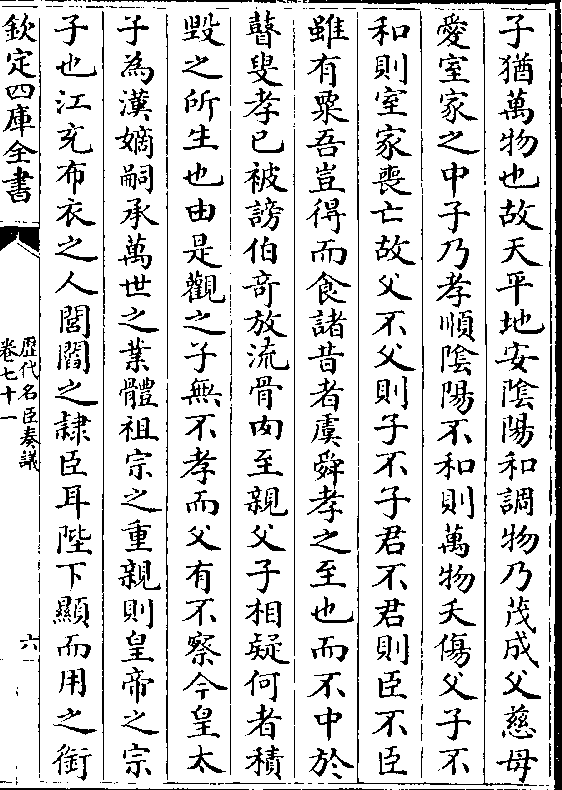 子猶萬物也故天平地安隂陽和調物乃茂成父慈母
愛室家之中子乃孝順隂陽不和則萬物夭傷父子不
和則室家喪亡故父不父則子不子君不君則臣不臣
雖有粟吾豈得而食諸昔者虞舜孝之至也而不中於
瞽叟孝已被謗伯奇放流骨肉至親父子相疑何者積
毀之所生也由是觀之子無不孝而父有不察今皇太
子為漢嫡嗣承萬世之業體祖宗之重親則皇帝之宗
子也江充布衣之人閭閻之隷臣耳陛下顯而用之銜
欽定四庫全書
歴代名臣奏議
卷七十一
六